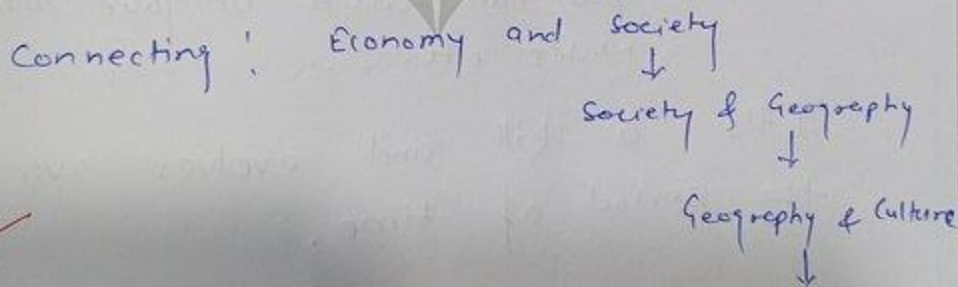 Connecting : Economy and Society
↓
Society & Geography
↓
Geography & Culture
↓